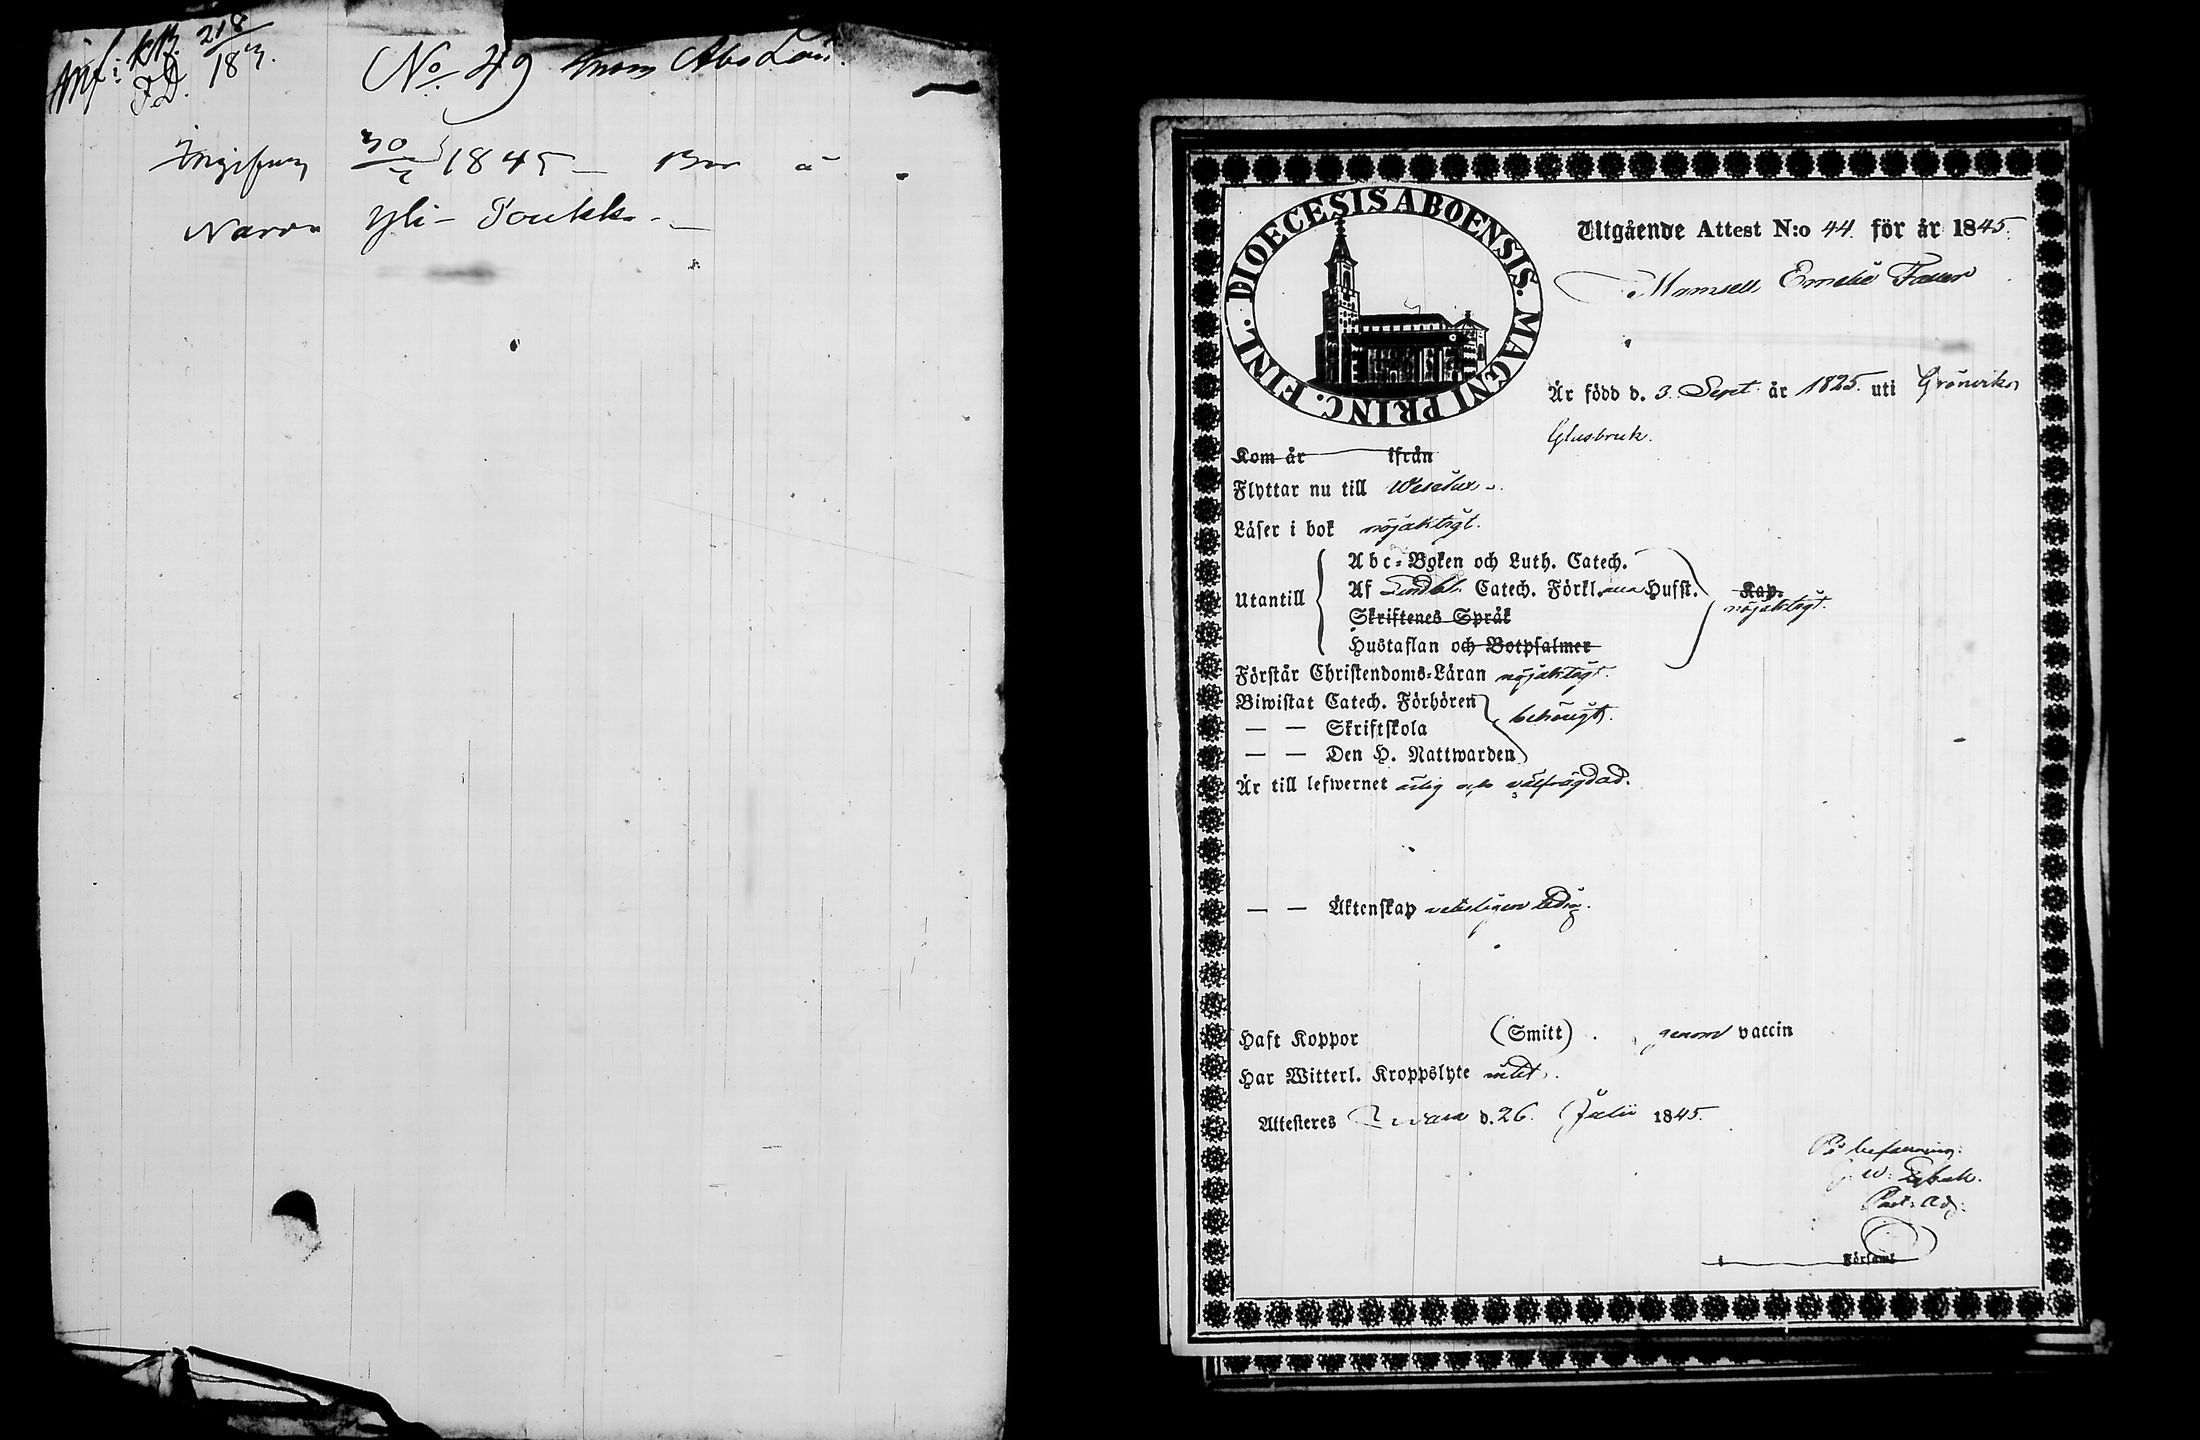 Inf: KB. 218
F.D. 183.
No 49 från Åbo Län.
30/7 1845 - Bor å
Yli-Toukk
DIOECESIS ABOENSIS. MAGNI PRINC. FINL.
Utgående Attest N:o 44 för år 1845.
Mamsell Emelie
Är född d. 3 Sept. år 1825 uti Grönviks
Glasbruk.
Kom år ifrån
Flyttar nu till
Läser i bok nöjaktigt.
Abc-Boken och Luth. Catech.
Utantill
Af Lindbl. Catech. Förkl. Hufst. Kap.
nöjaktigt.
Skriftenes Språk
Hustaflan och Botpsalmer
Förstår Christendoms-Läran nöjaktigt.
Biwistat Catech. Förhören
behörigt.
— — Skriftskola
— — Den H. Nattwarden
Är till lefwernet ärlig och välfrägdad.
— — Äktenskap veterligen ledig.
Haft Koppor (Smitt). genom vaccin
Har Witterl. Kroppslyte intet.
Attesteres d. 26 Julii 1845.
På befallning:
G. W.
Past. Adj.
i Församl